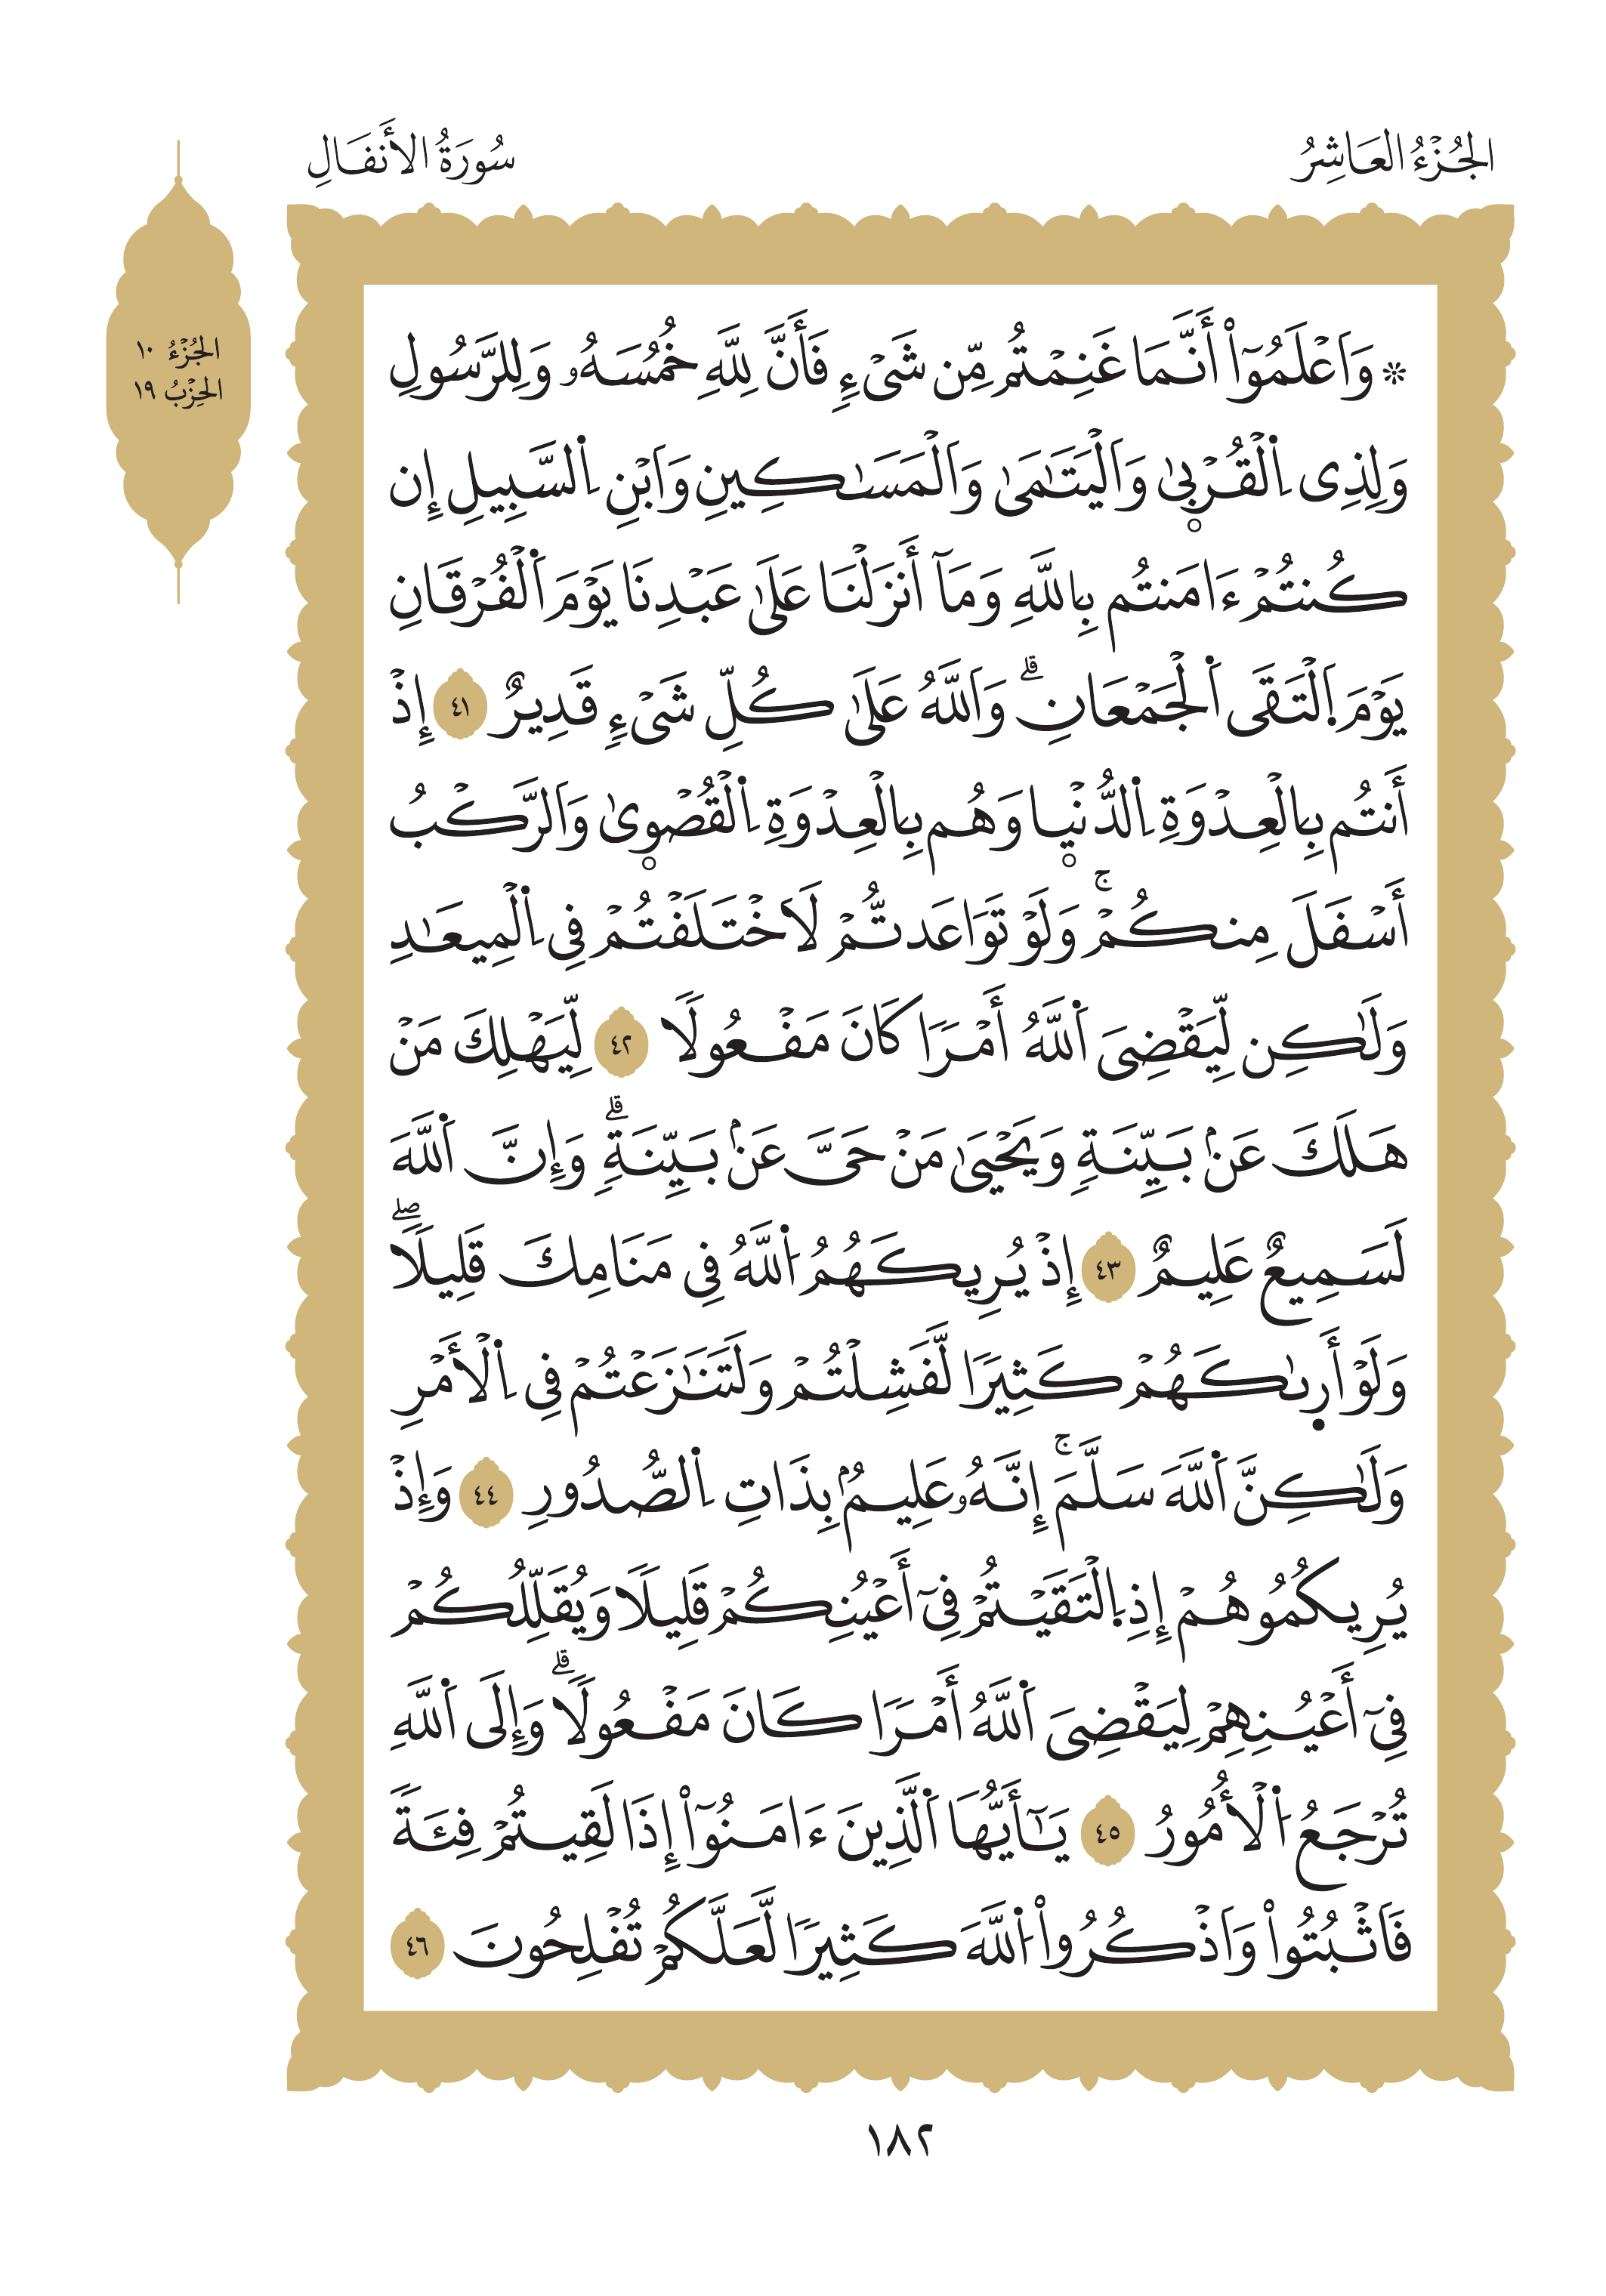 الجُزْءُ العَاشِرُ
سُورَةُ الأَنفَالِ
الجُزْءُ ١٠
الحِزْبُ ١٩
۞ وَاَعْلَمُوٓاْ أَنَّمَا غَنِمْتُم مِّن شَىْءٍ فَأَنَّ لِلَّهِ خُمُسَهُۥ وَلِلرَّسُولِ
وَلِذِى اِ۬لْقُرْبىٰ وَالْيَتَٰمَىٰ وَالْمَسَٰكِينِ وَابْنِ اِ۬لسَّبِيلِ إِن
كُنتُمْ ءَامَنتُم بِاللَّهِ وَمَآ أَنزَلْنَا عَلَىٰ عَبْدِنَا يَوْمَ اَ۬لْفُرْقَانِ
يَوْمَ اَ۪لْتَقَى اَ۬لْجَمْعَانِۗ وَاللَّهُ عَلَىٰ كُلِّ شَىْءٍ قَدِيرٌ ٤١ إِذْ
أَنتُم بِالْعِدْوَةِ اِ۬لدُّنْيا وَهُم بِالْعِدْوَةِ اِ۬لْقُصْوىٰ وَالرَّكْبُ
أَسْفَلَ مِنكُمْۚ وَلَوْ تَوَاعَدتُّمْ لَاَخْتَلَفْتُمْ فِى اِ۬لْمِيعَٰدِ
وَلَٰكِن لِّيَقْضِىَ اَ۬للَّهُ أَمْرًا كَانَ مَفْعُولًا ٤٢ لِّيَهْلِكَ مَنْ
هَلَكَ عَنۢ بَيِّنَةٍ وَيَحْيَىٰ مَنْ حَىَّ عَنۢ بَيِّنَةٍۗ وَإِنَّ اَ۬للَّهَ
لَسَمِيعٌ عَلِيمٌ ٤٣ إِذْ يُرِيكَهُمُ اُ۬للَّهُ فِى مَنَامِكَ قَلِيلًاۖ
وَلَوْ أَرىٰكَهُمْ كَثِيرًا لَّفَشِلْتُمْ وَلَتَنَٰزَعْتُمْ فِى اِ۬لْأَمْرِ
وَلَٰكِنَّ اَ۬للَّهَ سَلَّمَۚ إِنَّهُۥ عَلِيمُۢ بِذَاتِ اِ۬لصُّدُورِ ٤٤ وَإِذْ
يُرِيكُمُوهُمْ إِذِ اِ۪لْتَقَيْتُمْ فِىٓ أَعْيُنِكُمْ قَلِيلًا وَيُقَلِّلُكُمْ
فِىٓ أَعْيُنِهِمْ لِيَقْضِىَ اَ۬للَّهُ أَمْرًا كَانَ مَفْعُولًاۗ وَإِلَى اَ۬للَّهِ
تُرْجَعُ اُ۬لْأُمُورُ ٤٥ يَٰٓأَيُّهَا اَ۬لَّذِينَ ءَامَنُوٓاْ إِذَا لَقِيتُمْ فِئَةً
فَاثْبُتُواْ وَاذْكُرُواْ اُ۬للَّهَ كَثِيرًا لَّعَلَّكُمْ تُفْلِحُونَ ٤٦
١٨٢